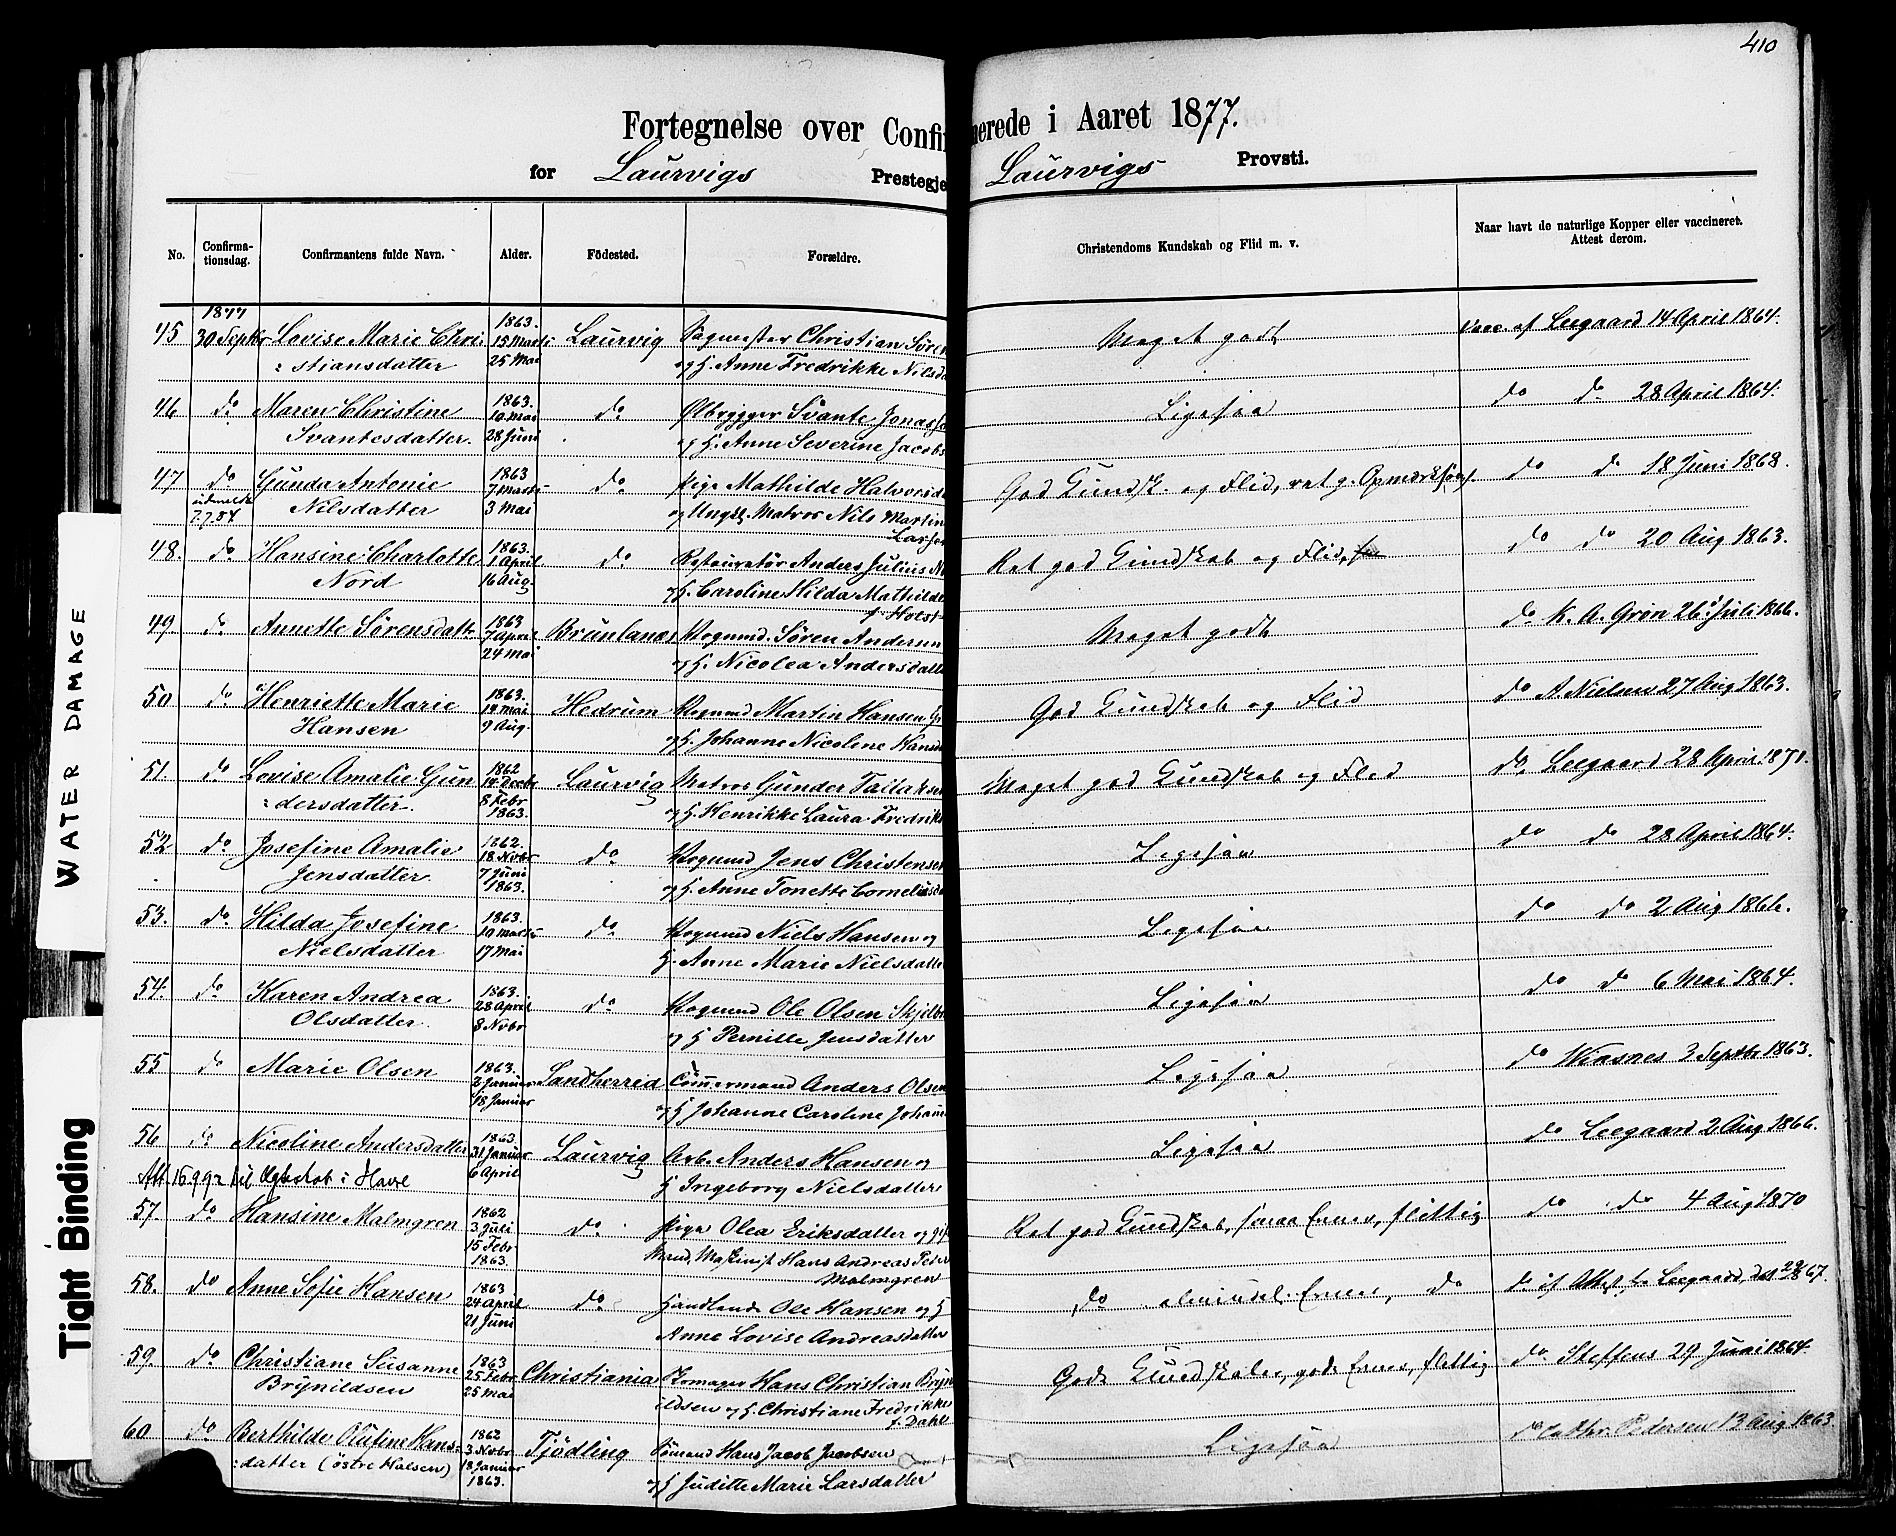 410
Fortegnelse over Confir
merede i Aaret 1877.
for Laurvigs Prestegje
Laurvigs Provsti.
No. Confirma-tionsdag. Confirmantens fulde Navn. Alder. Födested. Forældre. Christendoms Kundskab og Flid m. v. Naar havt de naturlige Kopper eller vaccineret. Attest derom.
1877 1863.
45 30 Septbr Lovise Marie Chri 15 Marts Laurvig Sagmester Christian Søren Meget godt Vacc. af Leegaard 14 April 1864.
: stiansdatter 25 Mai og H. Anne Fredrikke Nilsda
46 do Maren Christine 1863. 10 Mai do Ølbrygger Svante Jonass Ligesaa do do 28 April 1864.
Svantesdatter. 28 Juni og H. Anne Severine Jacobs
47 do Gunda Antonie 1863 7 Marts do Pige Mathilde Halvorsd God Kundsk. og Flid, ret g. Opmærksomh. do do 18 Juni 1868.
udmeldt 7.7.04 Nilsdatter 3 Mai og Ungk. Matros Nils Martin
Larsen
48. do Hansine Charlotte 1863. 1 April do Restauratør Anders Julius N Ret god Kundskab og Flid, do do 20 Aug 1863.
Nord 16 Aug. og H. Caroline Hilda Mathilde
f. Holst
49 do Annette Sørensdatter 1863 7 April Brunlanæs Kogmd. Søren Andersen Meget godt do K. A. Grøn 26 Juli 1866.
24 Mai og H. Nicolea Andersdatte
50 do Henriette Marie 1863. 14 Mai Hedrum Kogmd Martin Hansen God Kundskab og Flid do A Nielsen 27 Aug 1863.
Hansen 9 Aug. og H. Johanne Nicoline Hansd
51 do Lovise Amalie Gun 1862 14 Decbr Laurvig Matros Gunder Tallaksen Meget god Kundskab og Flid do Leegaard 28 April 1871.
: dersdatter. 8 Febr 1863. og H. Henrikke Laura Fredrik
52 do Josefine Amalie 1862. 18 Novbr do Kogmd Jens Christensen Ligesaa do do 28 April 1864.
Jensdatter 7 Juni 1863. og H. Anne Tonette Cornelius
53. do Hilda Josefine 1863. 10 Marts do Kogmd Niels Hansen og Ligesaa do do 2 Aug 1866.
Nielsdatter 17 Mai H. Anne Marie Nielsdatte
54. do Karen Andrea 1863. 28 April do Kogmd Ole Olsen Skjelb Ligesaa do do 6 Mai 1864.
Olsdatter 8 Novbr og H Pernille Jensdatter
55 do Marie Olsen 1863. 2 Januar Sandherred Tömmermand Anders Olsen Ligesaa do Wiasnes 3 Septbr 1863.
18 Januar og H Johanne Caroline Johann
56 do Nicoline Andersdatter 1863. 31 Januar Laurvig Arb. Anders Hansen og Ligesaa do Leegaard 2 Aug 1866.
Att. 16 9 92 til Ægteskab i Havre 6 April H Ingeborg Nielsdatter
57. do Hansine Malmgren 1862 3 Juli do Pige Olea Eriksdatter og Ret god Kundskab, smaa Evner, flittig do do 4 Aug 1870
15 Febr 1863. Mand Maskinist Hans Andreas Peter
Malmgren
58. do Anne Sofie Hansen 1863 24 April do Handlende Ole Hansen og H do almindel. Evner, do do if. Attest fra Leegaard, dat 29/8 67.
21 Juni Anne Lovise Andreasdatter
59. do Christiane Susanne 1863 25 Febr Christiania Skomager Hans Christian Bryn Gode Kundskaber, gode Evner, flittig do Steffens 29 Juni 1864
Brynildsen 25 Mai ildsen og H. Christiane Fredrikke
f. Dahl
60 do Berthilde Olufine Hans 1862 3 Novbr Tjödling Sömand Hans Jacob Jacobsen Ligesaa do Cathr. Pedersen 13 Aug 1863.
: datter (östre Halsen) 18 Januar 1863. og H Juditte Marie Larsdatter
WATER DAMAGE
Tight Binding